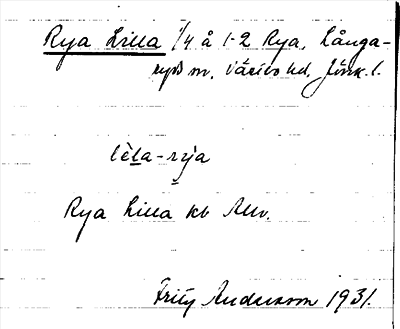 Rya Lilla 1/4 å 1-2 Rya, Långa-
ryds sn, Västbo hd, Jönk. l.
lìl̲a-rỳa
Rya Lilla kb Allm.
Fritz Andersson 1931.